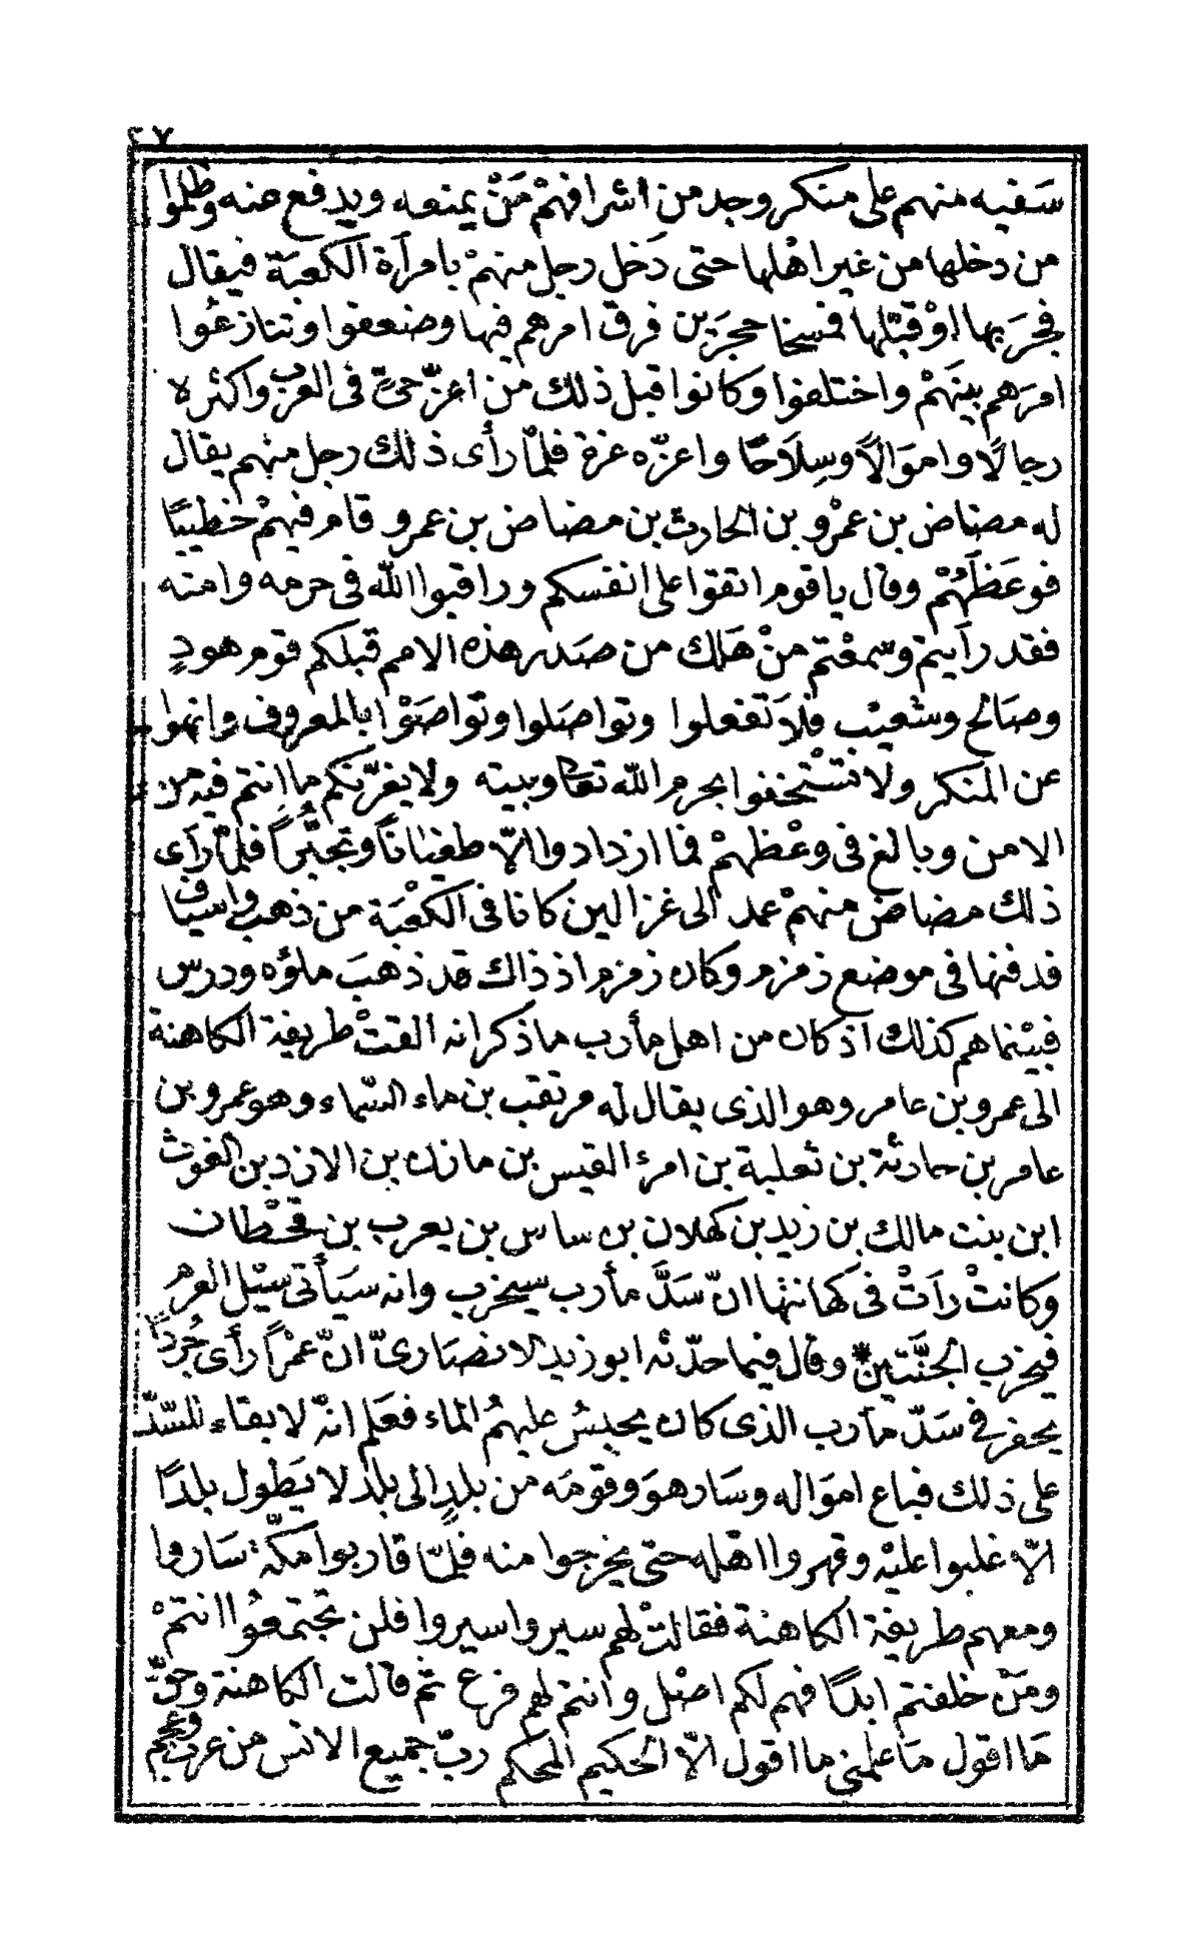 ٢٧
سَفيه منهم على منكر وجد من اشرافهمْ مَنْ يمنعه ويدفع عنه وظلموا
من دخلها من غير اهْلها حتى دَخل رجل منهمْ بامرآة الكعبَة فيقال
فجرَ بها اوْ قبّلها فمسخا حجرَين فرق امرهم فيها وضعفوا وتنازعُوا
امرَهم بينَهمْ واختلفوا وكانوا قبل ذلك من اعزّ حىّ فى العرب واكثره
رجالًا واموَالًا وسِلَاحًا واعزّه عزة فلمّا رأى ذلك رجل منهم يقال
له مضاض بن عمْرو بن الحارث بن مضاض بن عمرو قام فيهمْ خطيبًا
فوعَظَهُمْ وقال يا قوم اتقوا على انفسكم وراقبوا الله فى حرمه وامنه
فقد رأيتم وسمعْتم منْ هَلك من صَدر هذه الامم قبلكم قوم هودٍ
وصَالح وشعيْب فلاَ تفعلوا وتواصَلوا وتواصَوْا بالمعروف وانهوا
عن المنكر ولا تسْتخفوا بحرم الله تعالى وبيته ولا يغرّنكم ما انتم فيه من
الامن وبالغ فى وعْظهمْ فما ازدادوا الّا طغيانًا وتجبُّرًا فلمّا رَأى
ذلك مضاض منهمْ عمد الى غزالين كانا فى الكعْبَة من ذهب واسياف
فدفنها فى موضع زمزم وكان زمزم اذ ذاك قد ذهبَ ماؤه ودرس
فبيْنما هم كذلك اذ كان من اهل مأرب ما ذكر انه القتْ طريفة الكاهنة
الى عمرو بن عامر وهو الذى يقال له مرتقب بن ماء السّماء وهو عمرو بن
عامر بن حارثة بن ثعلبة بن امرئ القيس بن مازن بن الازد بن الغوث
ابن بنت مالك بن زيد بن كهلان بن ساس بن يعرب بن قحْطان
وكانتْ رأتْ فى كهانتها انّ سَدَّ مأرب سيخرب وانه سَيَأتى سيْل العرم
فيخرب الجنَّتيْن * وقال فيما حدّثه ابو زيد الانصَارىّ انّ عمْرًا رأى جُرذًا
يحفر فى سَدّ مأرب الذى كان يحبسُ عليهمُ الماء فعَلم انّه لا بقاء للسّدّ
على ذلك فباع اموَاله وسَار هوَ وقومَه من بلدٍ الى بلد لا يَطول بلدًا
الّا غلبوا عليْه وقهروا اهْله حتى يخرجوا منه فلمّا قاربوا مكّة سَاروا
ومعهم طريفة الكاهنة فقالتْ لهم سيروا سيروا فلن تجتمعُوا انتمْ
ومَنْ خلفتم ابدًا فهم لكم اصْل وانتم لهم فرع ثم قالت الكاهنة وحقّ
مَا اقول مَا علمنى ما اقول الّا الحكيم المحكم ربّ جميع الانس من عرب وعجم